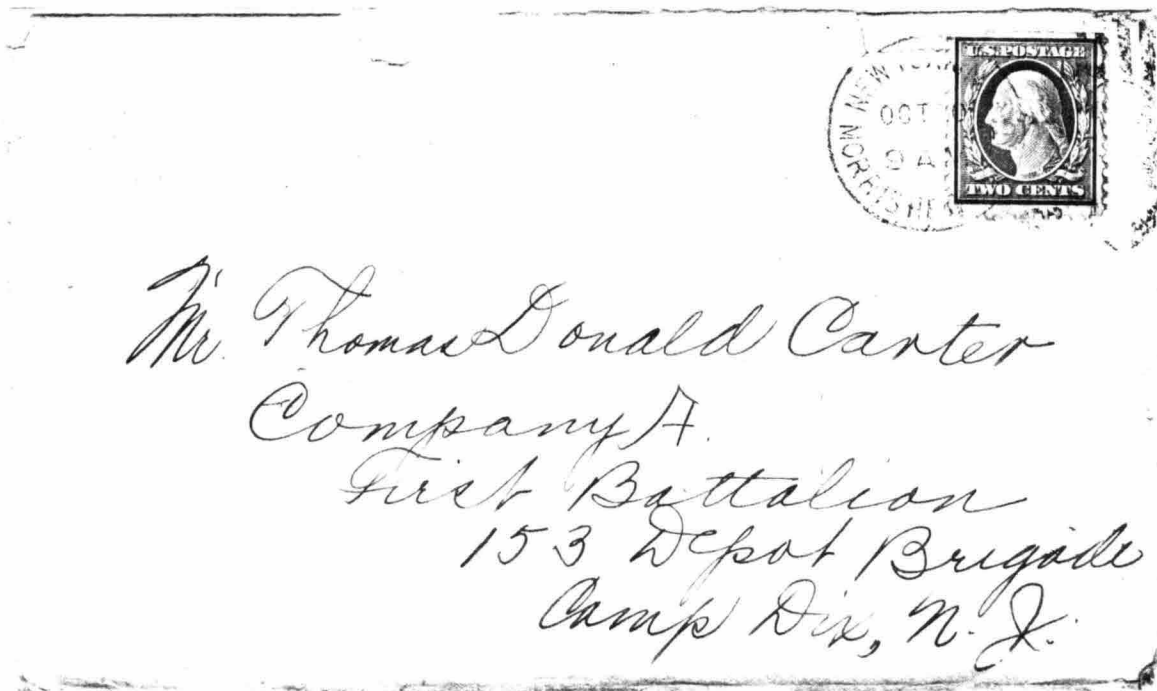 NEW YORK
OCT
9 A
MORRIS HE
U.S. POSTAGE
TWO CENTS
Mr. Thomas Donald Carter
Company A.
First Battalion
153 Depot Brigade
Camp Dix, N. J.